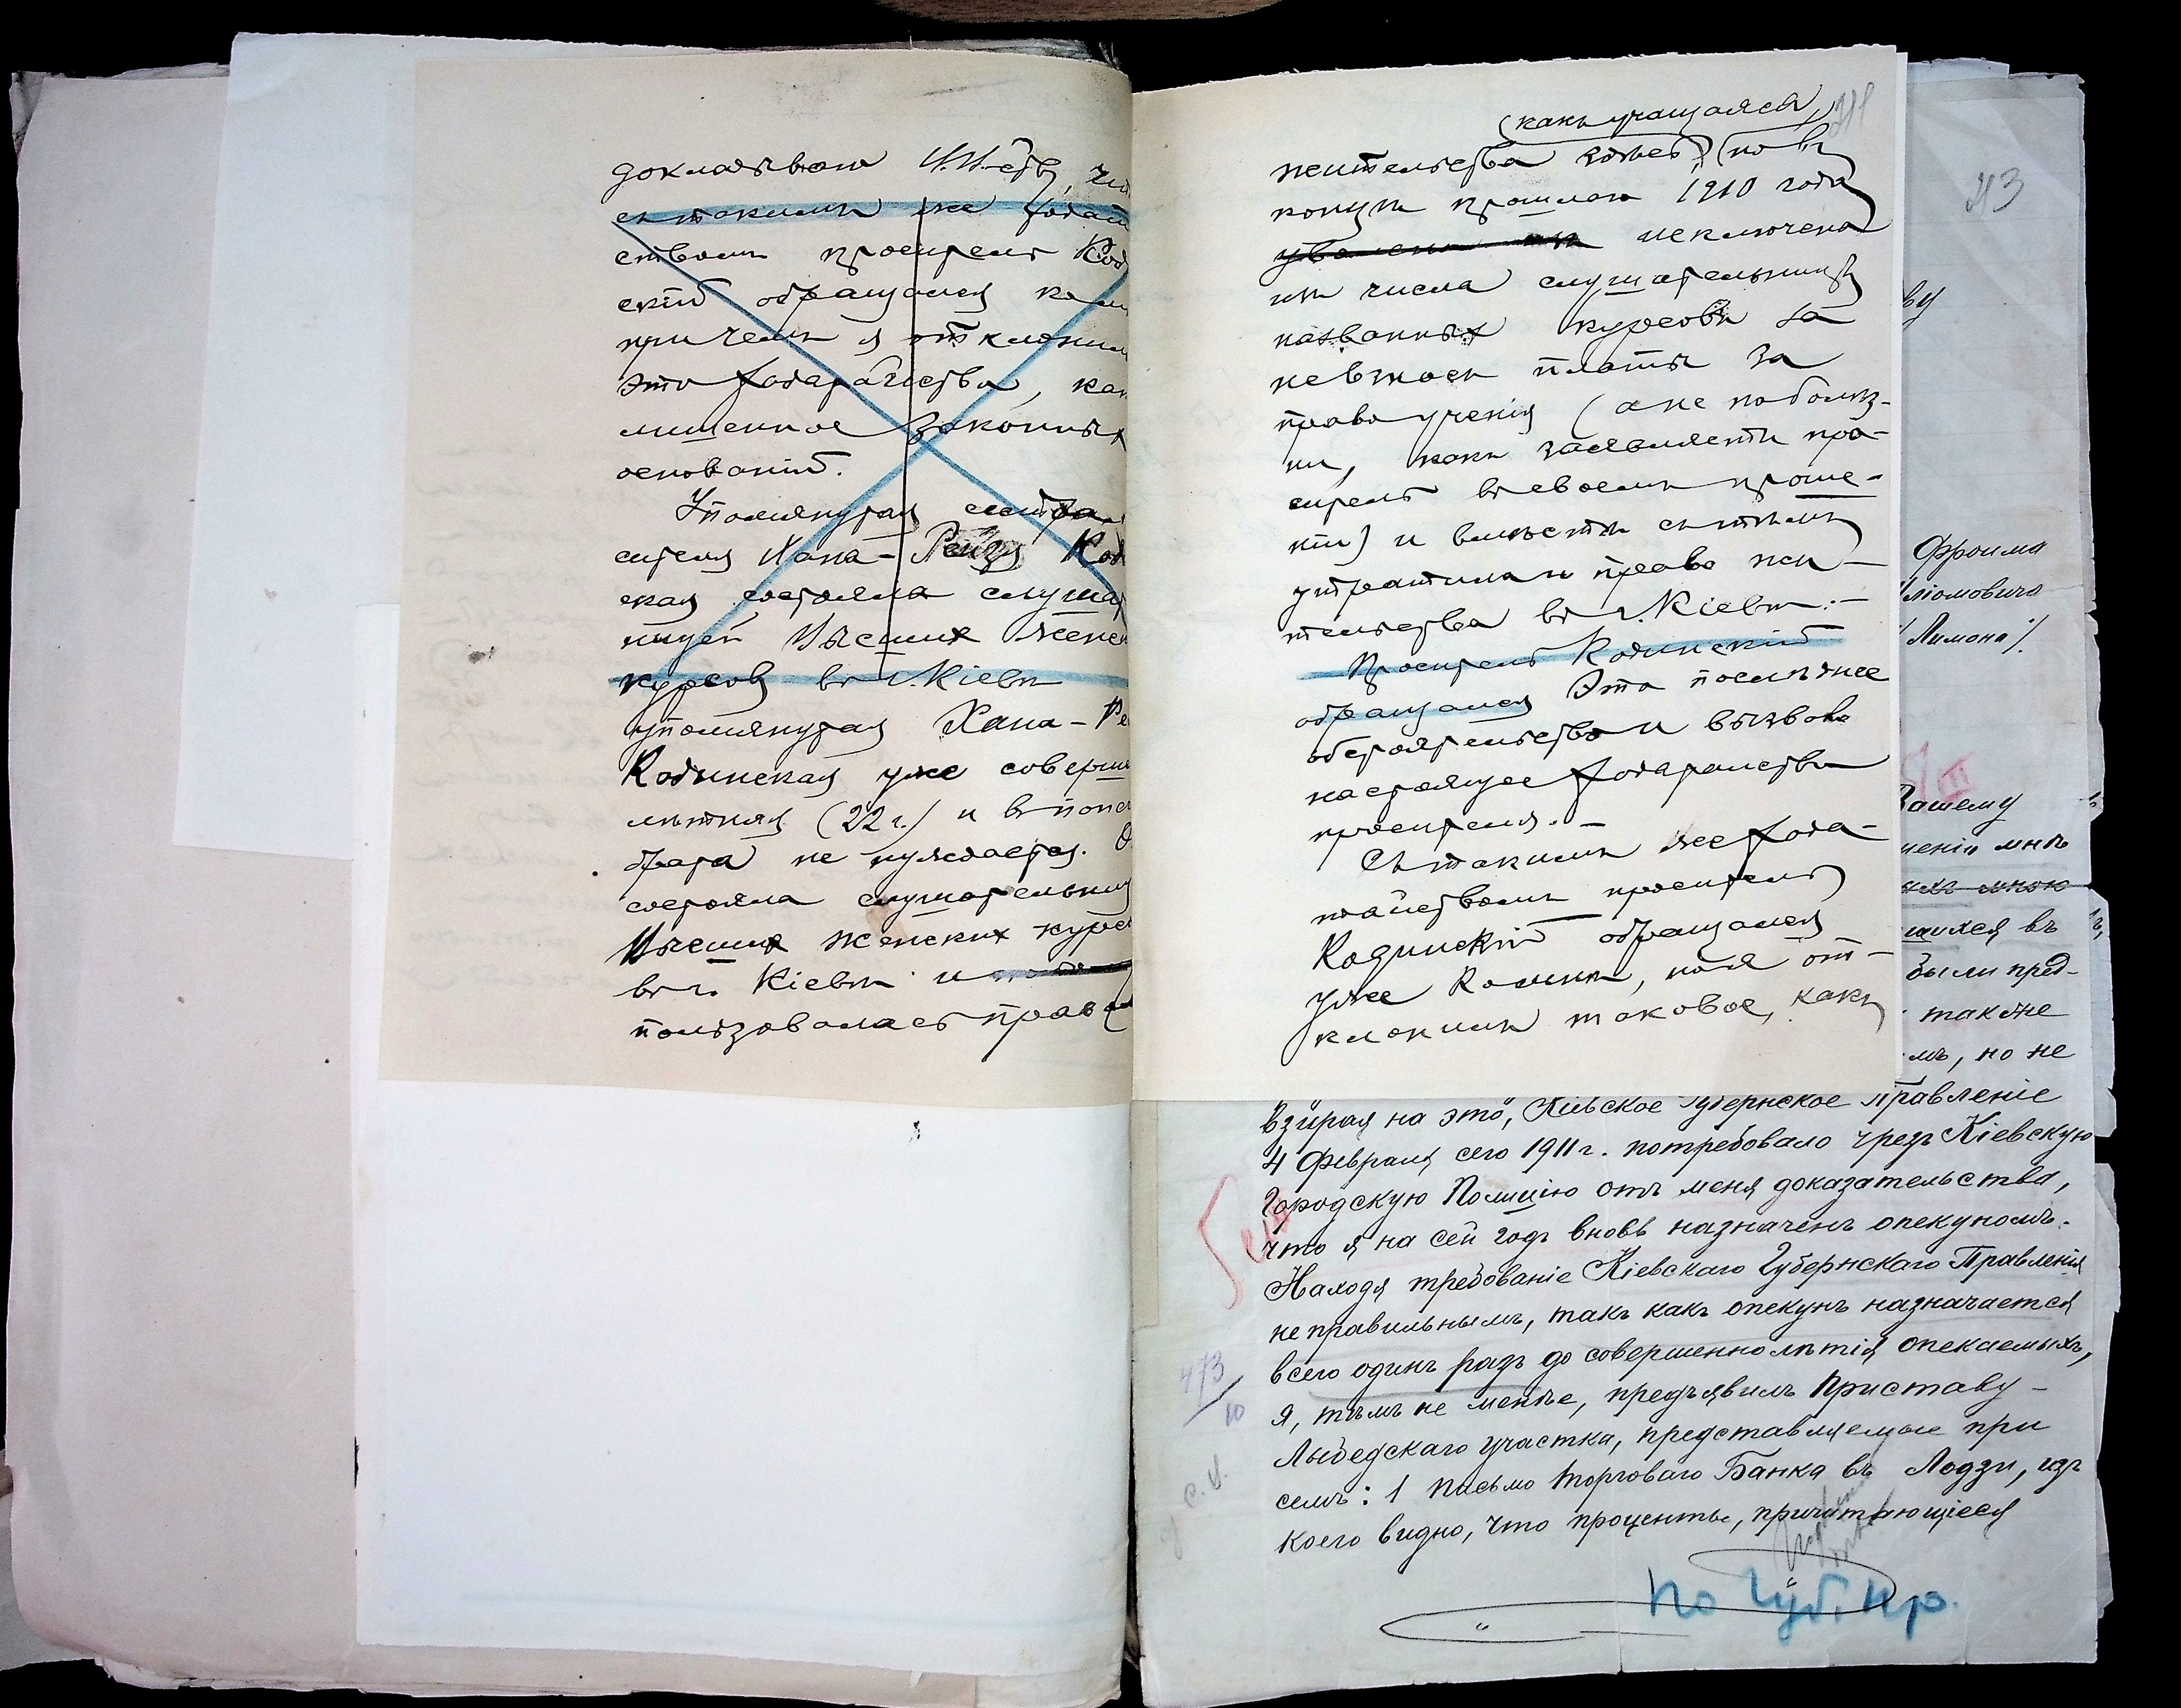 докладываю И.И-ству, что
съ такимъ же ходатай
ствомъ проситель Код
скій обращался ко мн
при чемъ я отклонилъ
это ходатайство, как
лишенное законныхъ
основаній.
Упомянутая сестра
сителя Хана-Рейза Код
ская состояла слуша
ницей Высшихъ Женск
курсовъ въ г. Кіевѣ
упомянутая Хана-Ре
Кодинская уже соверше
лѣтняя (22 г.) и въ попеч
брата не нуждается. О
состояла слушательниц
Высшихъ женскихъ курсо
въ г. Кіевѣ и
пользовалась правом
(какъ учащаяся)
жительства здѣсь, но въ
концѣ прошлаго 1910 года
уволена изъ исключена
изъ числа слушательницъ
названныхъ курсовъ за
невзносъ платы за
право ученія (а не по болѣз-
ни, какъ заявляетъ про-
ситель въ своемъ проше-
ніи) и вмѣстѣ съ тѣмъ
утратила и право жи-
тельства въ г. Кіевѣ.-
Проситель Кодинскій
обращался Это послѣднее
обстоятельство и вызвало
настоящее ходатайство
просителя.-
Съ такимъ же хода-
тайствомъ проситель
Кодинскій обращался
уже ко мнѣ, но я от-
клонилъ таковое, какъ
43
ву
Фроима
Ліомовича
Лимона/.
Вашему
меніи мнѣ
ихъ мною
щихся въ
были пред-
также
мъ, но не
взирая на это, Кіевское Губернское Правленіе
4 Февраля сего 1911 г. потребовало чрезъ Кіевскую
Городскую Полицію отъ меня доказательства,
что я на сей годъ вновь назначенъ опекуномъ.
Находя требованіе Кіевскаго Губернскаго Правленія
неправильнымъ, такъ какъ опекунъ назначается
всего одинъ разъ до совершеннолѣтія опекаемыхъ,
я, тѣмъ не менѣе, предъявилъ Приставу
Лыбедскаго участка, представляемые при
семъ: 1 Письмо Торговаго Банка въ Лодзи, изъ
коего видно, что проценты, причитающіеся
473
10
с. И.
по Губ. Пр.